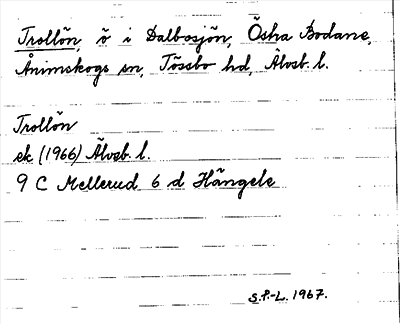 Trollön, ö i Dalbosjön, Östra Bodane,
Ånimskogs sn, Tössbo hd, Älvsb. l.
Trollön
ek (1966) Älvsb. l.
9 C Mellerud 6 d Hängele
S.P.-L. 1967.